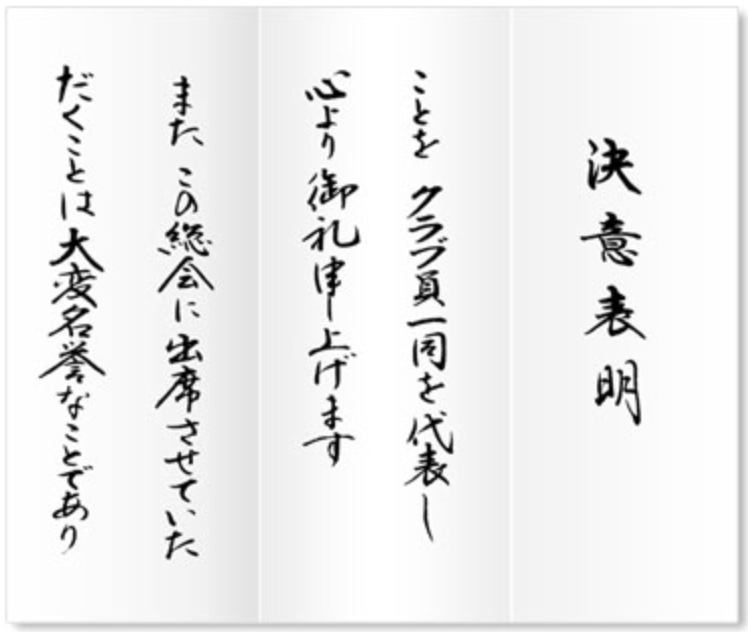 決意表明
ことを クラブ員一同を代表し
心より御礼申し上げます
また この総会に出席させていた
だくことは大変名誉なことであり